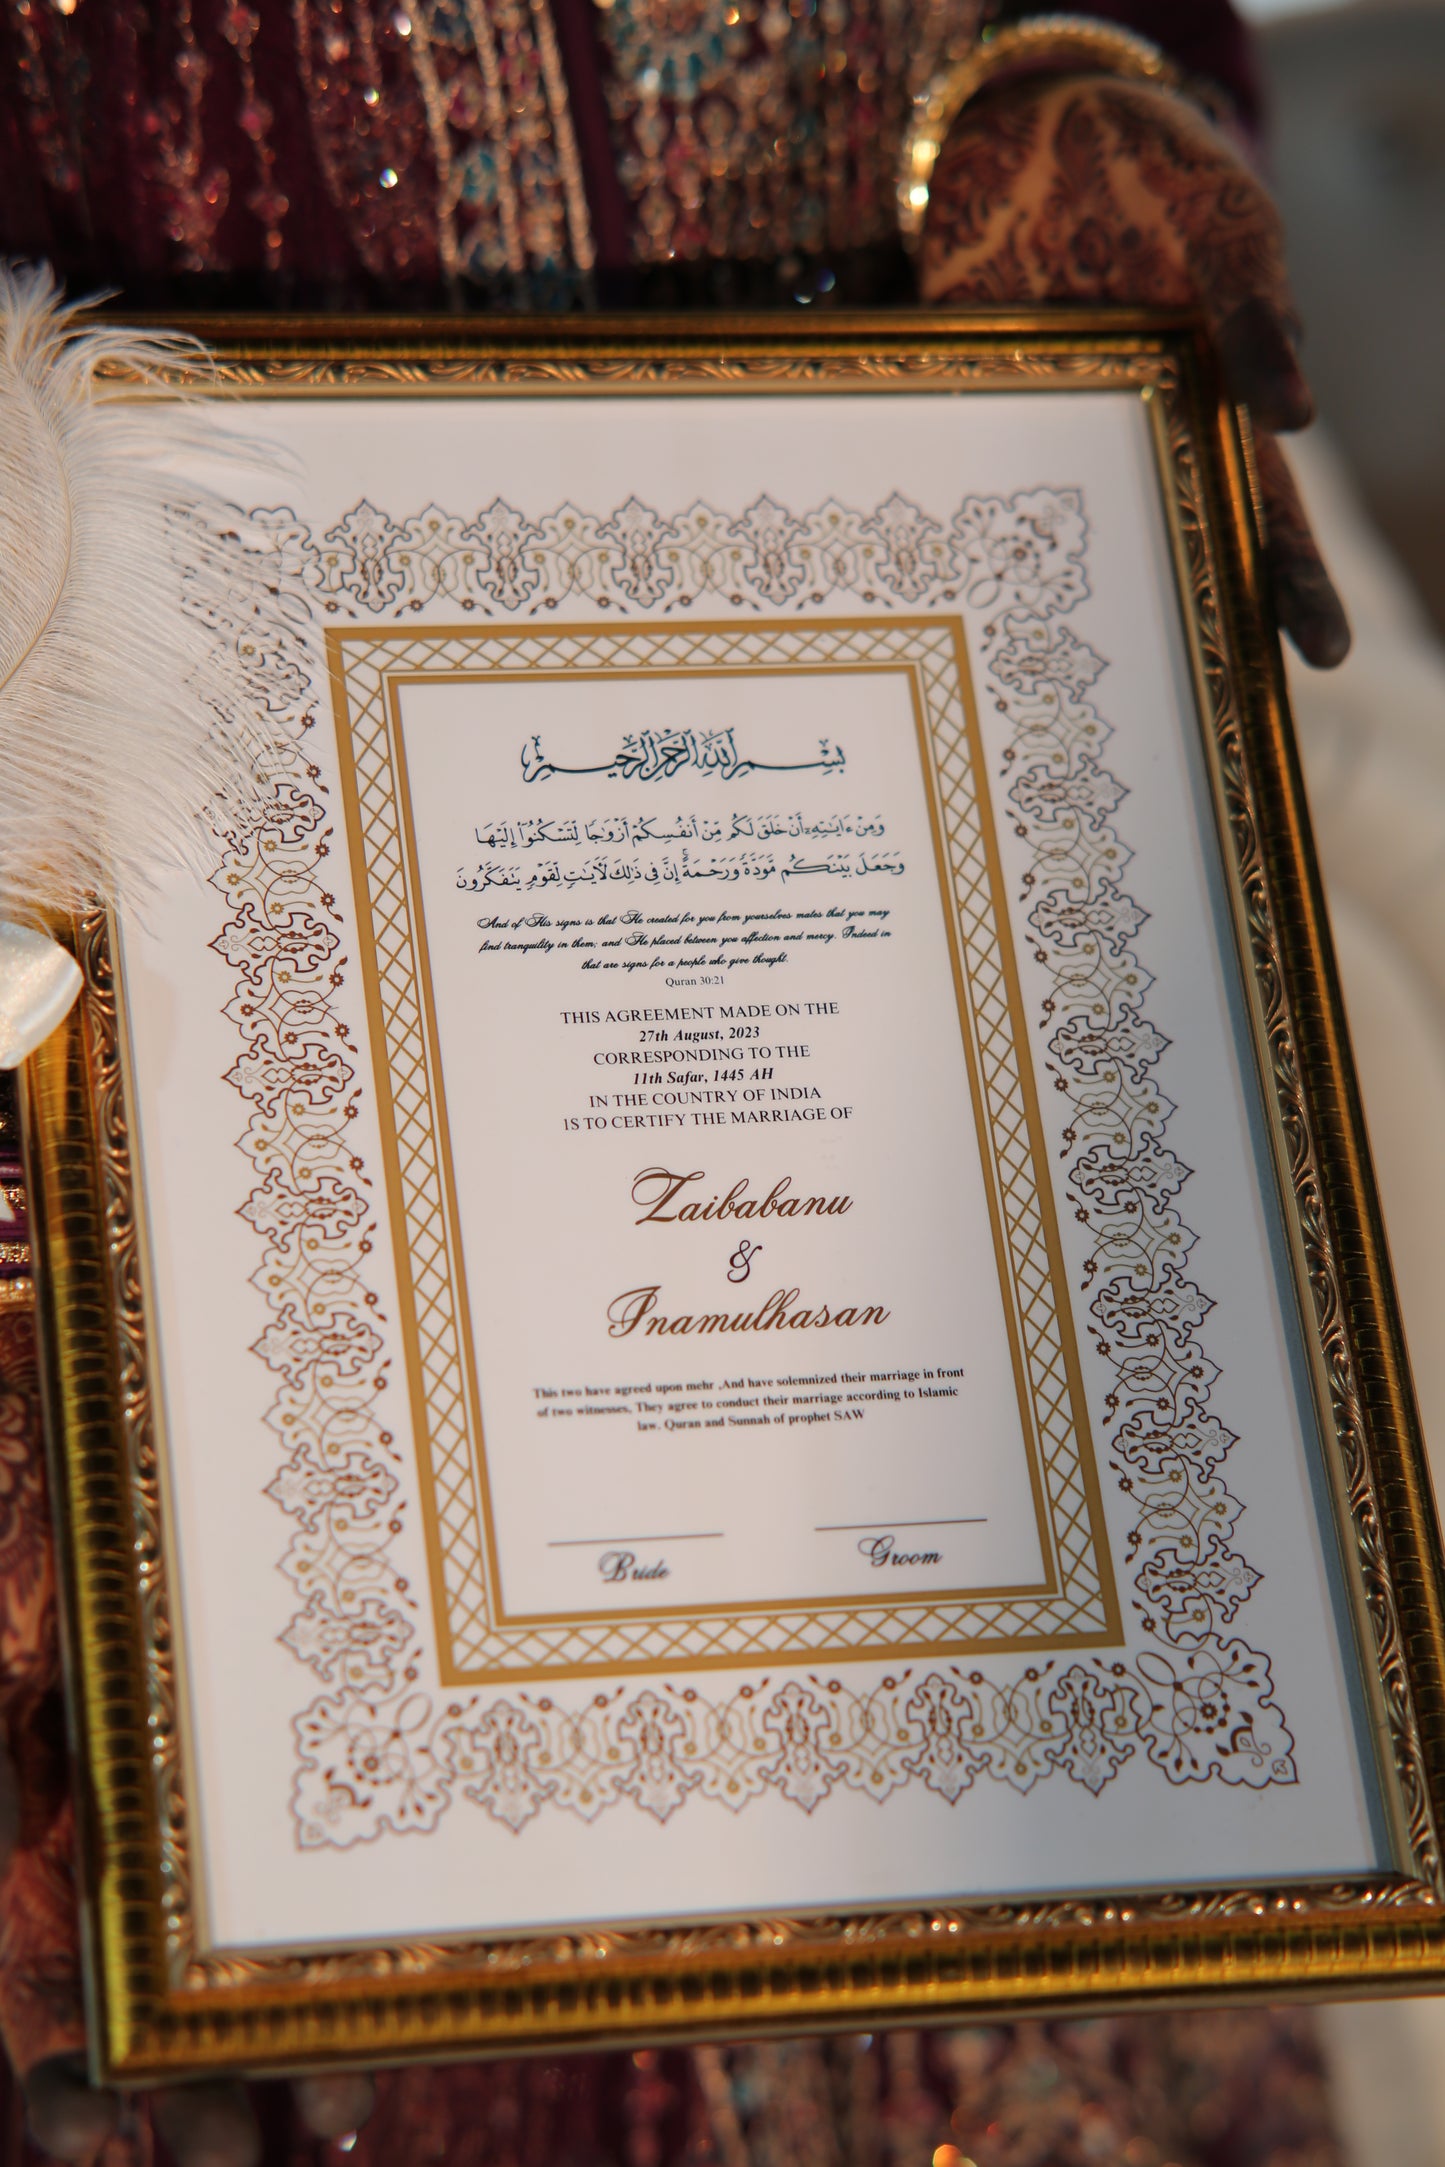 بِسْمِ اللَّهِ الرَّحْمَٰنِ الرَّحِيمِ
وَمِنْ ءَايَٰتِهِۦٓ أَنْ خَلَقَ لَكُم مِّنْ أَنفُسِكُمْ أَزْوَٰجًا لِّتَسْكُنُوٓا۟ إِلَيْهَا
وَجَعَلَ بَيْنَكُم مَّوَدَّةً وَرَحْمَةً ۚ إِنَّ فِى ذَٰلِكَ لَءَايَٰتٍ لِّقَوْمٍ يَتَفَكَّرُونَ
And of His signs is that He created for you from yourselves mates that you may
find tranquility in them; and He placed between you affection and mercy. Indeed in
that are signs for a people who give thought.
Quran 30:21
THIS AGREEMENT MADE ON THE
27th August, 2023
CORRESPONDING TO THE
11th Safar, 1445 AH
IN THE COUNTRY OF INDIA
IS TO CERTIFY THE MARRIAGE OF
Zaibabanu
&
Inamulhasan
This two have agreed upon mehr ,And have solemnized their marriage in front
of two witnesses. They agree to conduct their marriage according to Islamic
law. Quran and Sunnah of prophet SAW
Bride Groom